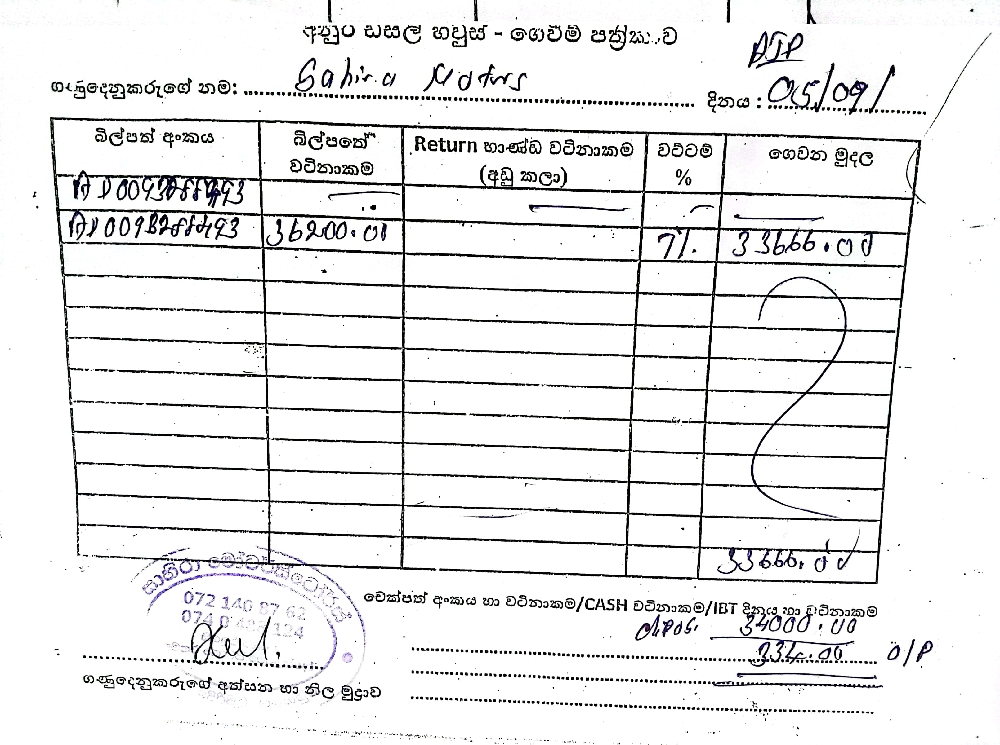 අනුර ඩීසල් හවුස් - ගෙවීම් පත්‍රිකාව
DJP
ගණුදෙනුකරුගේ නම: Sahira Motors දිනය : 05/09/
බිල්පත් අංකය බිල්පතේ වටිනාකම Return භාණ්ඩ වටිනාකම (අඩු කලා) වට්ටම් % ගෙවන මුදල
AD0093288493
AD0093288493 36200.00 7% 33666.00
33666.00
සාහිරා මෝටර්
072 140 87 62
චෙක්පත් අංකය හා වටිනාකම/CASH වටිනාකම/IBT දිනය හා වටිනාකම
34000.00
334.00 O/P
ගණුදෙනුකරුගේ අත්සන හා නිල මුද්‍රාව